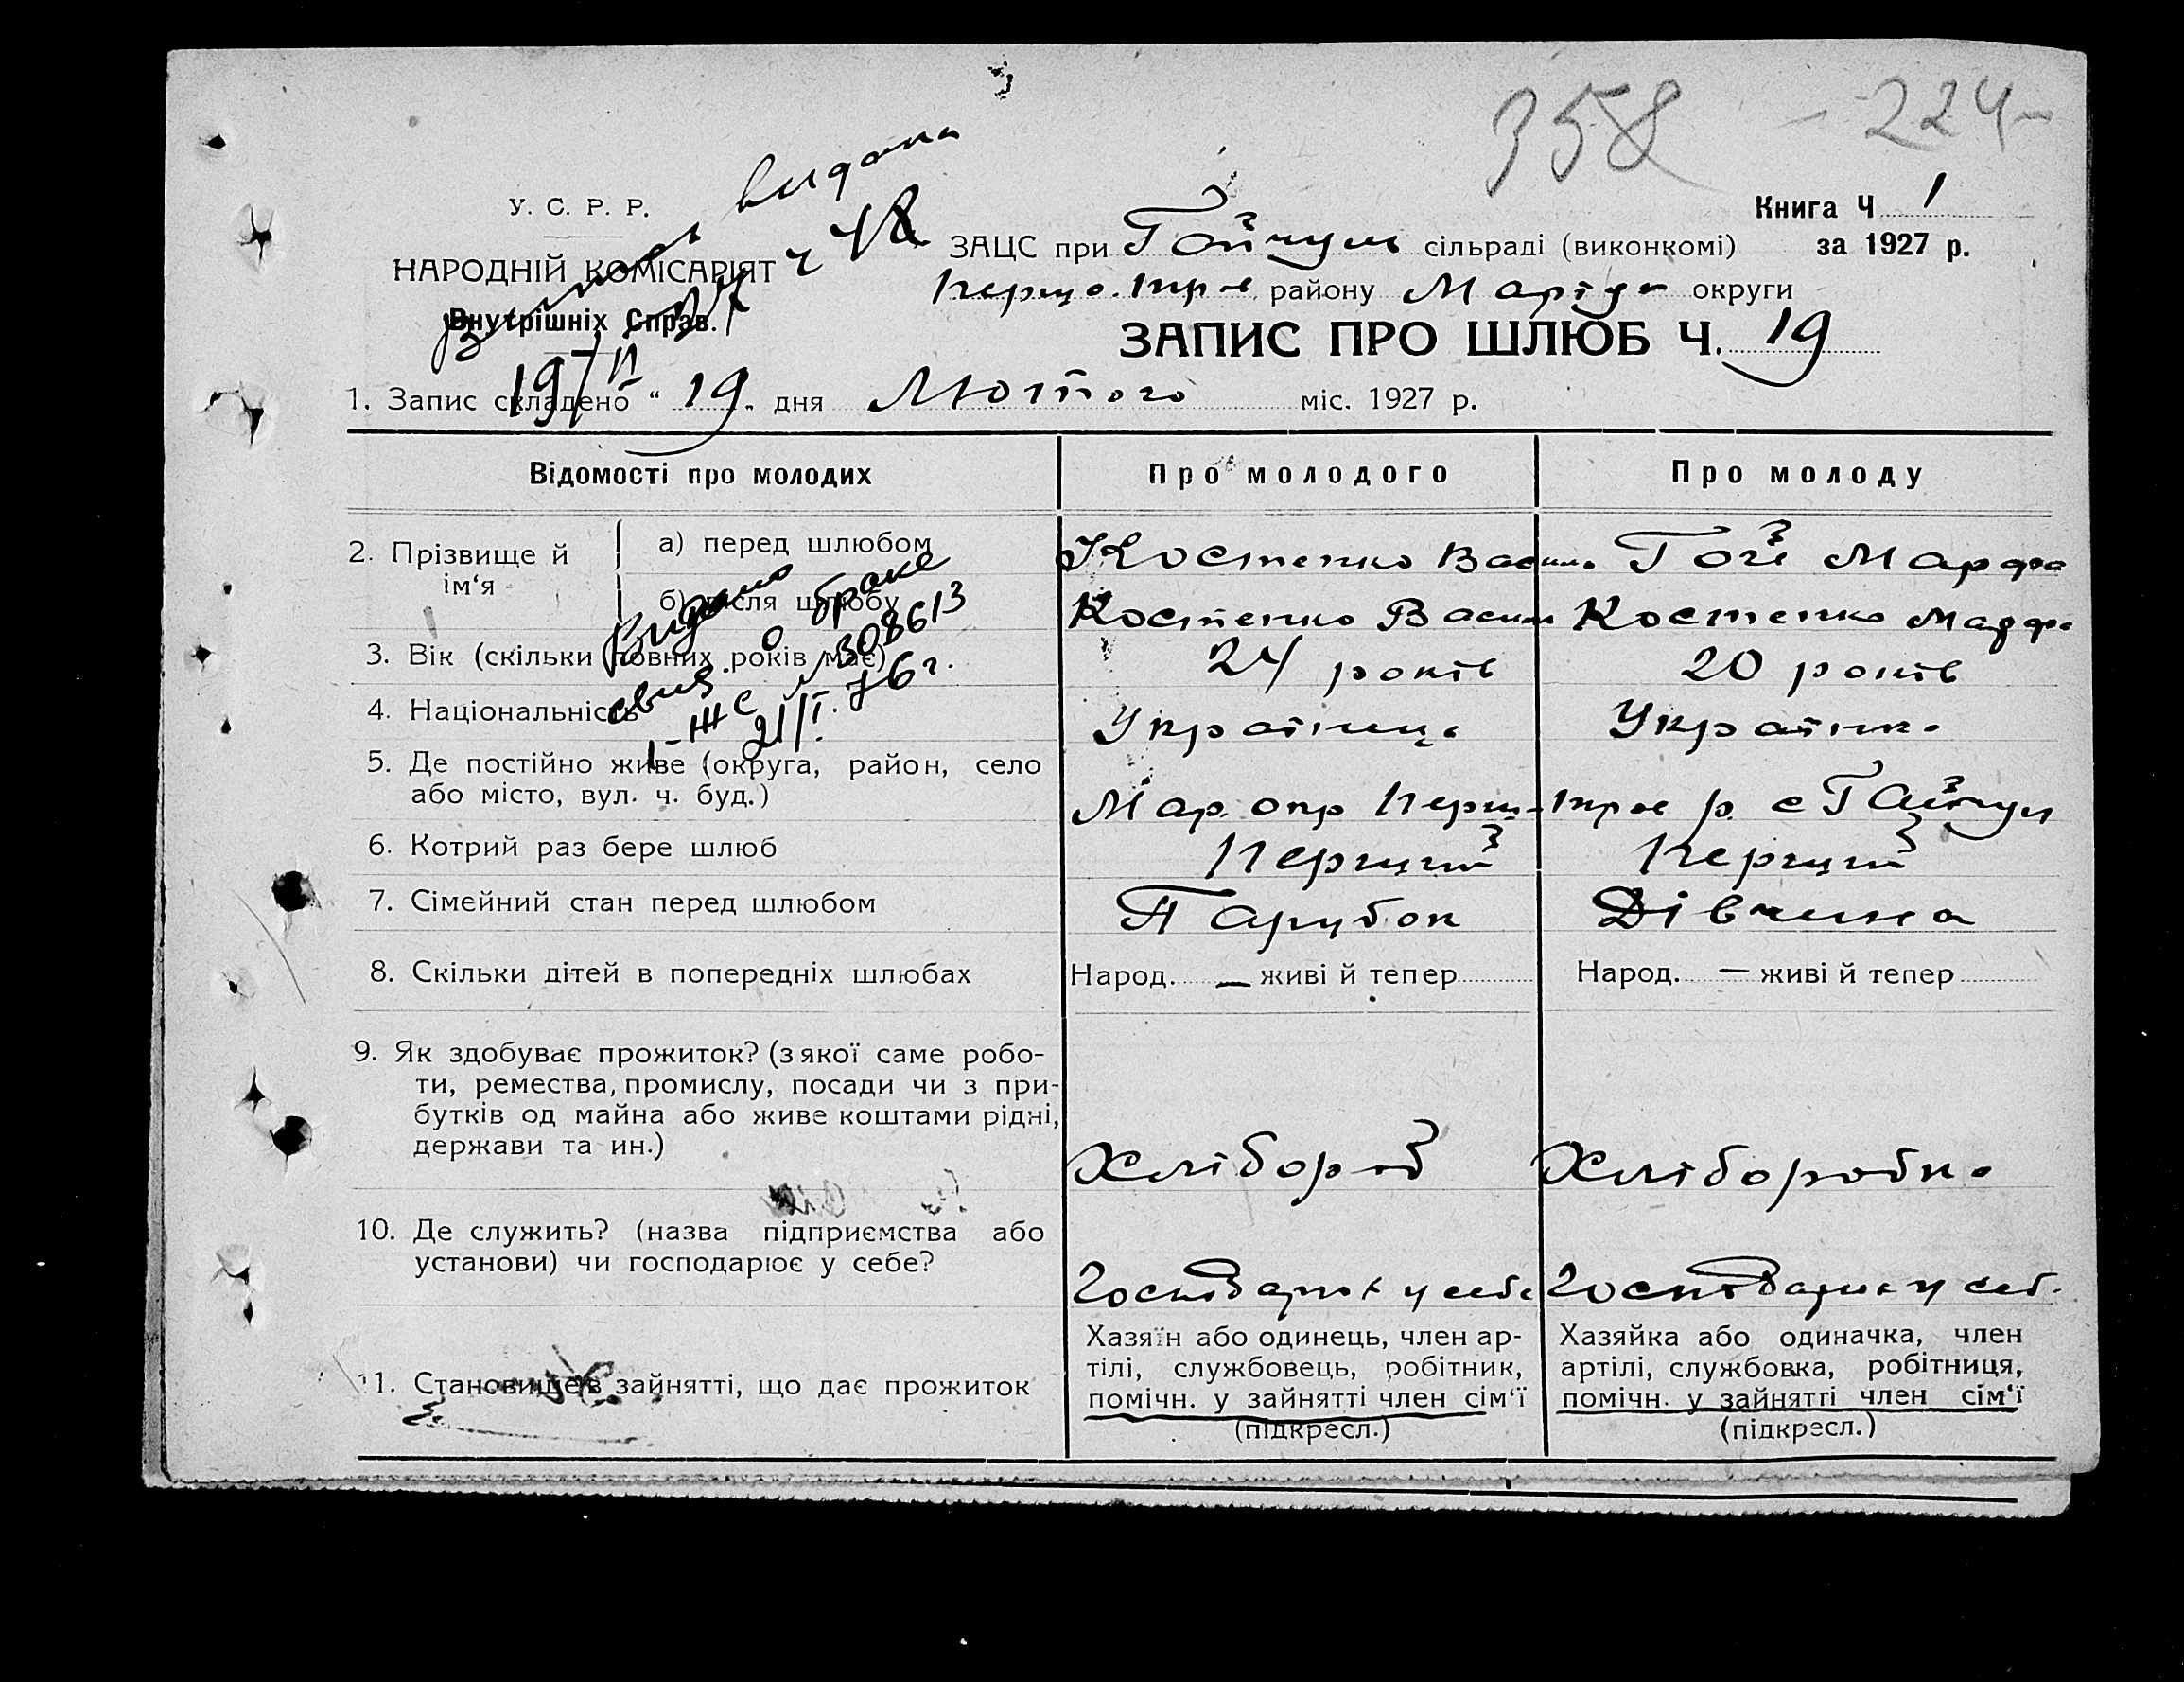 358 - 224 -
видана
У. С. Р. Р.
Книга Ч 1
НАРОДНІЙ КОМІСАРІЯТ
ч 42
ЗАЦС при Гайчуль сільраді (виконкомі) за 1927 р.
Внутрішніх Справ.
району Маріуп округи
ЗАПИС ПРО ШЛЮБ Ч. 19
19
1. Запис складено " 19 " дня Лютого міс. 1927 р.
Відомості про молодих Про молодого Про молоду
2. Прізвище й ім'я
а) перед шлюбом Костенко Васил Марфа
б) після шлюбу Костенко Васил Костенко Марфа
Видано
свид. о браке
I-ЖС № 308613
21/I. 76 г.
3. Вік (скільки повних років має) 24 років 20 років
4. Національність Українець Українка
5. Де постійно живе (округа, район, село
або місто, вул. ч. буд.) Мар. окр Перш-тра р. с Гайчул
6. Котрий раз бере шлюб Перший Перший
7. Сімейний стан перед шлюбом Парубок Дівчина
8. Скільки дітей в попередніх шлюбах Народ. — живі й тепер Народ. — живі й тепер
9. Як здобуває прожиток? (з якої саме робо-
ти, ремества, промислу, посади чи з при-
бутків од майна або живе коштами рідні,
держави та ин.) Хлібороб Хліборобка
10. Де служить? (назва підприємства або
установи) чи господарює у себе? Господарює у себе Господарює у себ.
11. Становище в зайнятті, що дає прожиток
Хазяїн або одинець, член ар-
тілі, службовець, робітник,
помічн. у зайнятті член сім'ї
(підкресл.)
Хазяйка або одиначка, член
артілі, службовка, робітниця,
помічн. у зайнятті член сім'ї
(підкресл.)